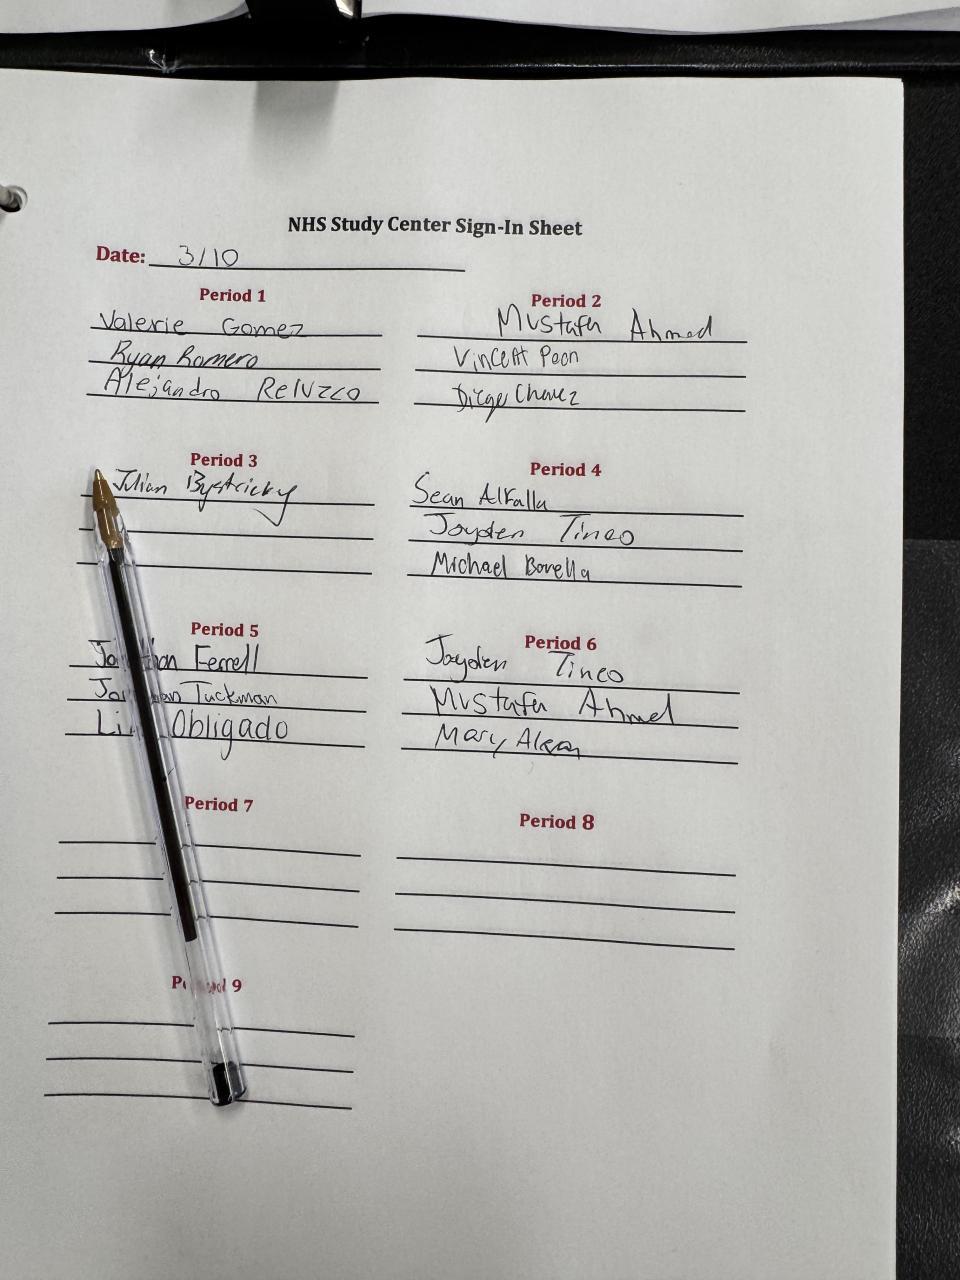 NHS Study Center Sign-In Sheet
Date: 3/10
Period 1
Valerie Gomez
Ryan Romero
Alejandro
Period 2
Mustafa Ahmed
Vincent Peon
Diego Chavez
Period 3
Julian Bystricky
Period 4
Sean Alkalla
Jayden Tineo
Michael Borella
Period 5
Ferrell
Tuckman
Obligado
Period 6
Jayden Tineo
Mustafa Ahmed
Mary
Period 7
Period 8
9